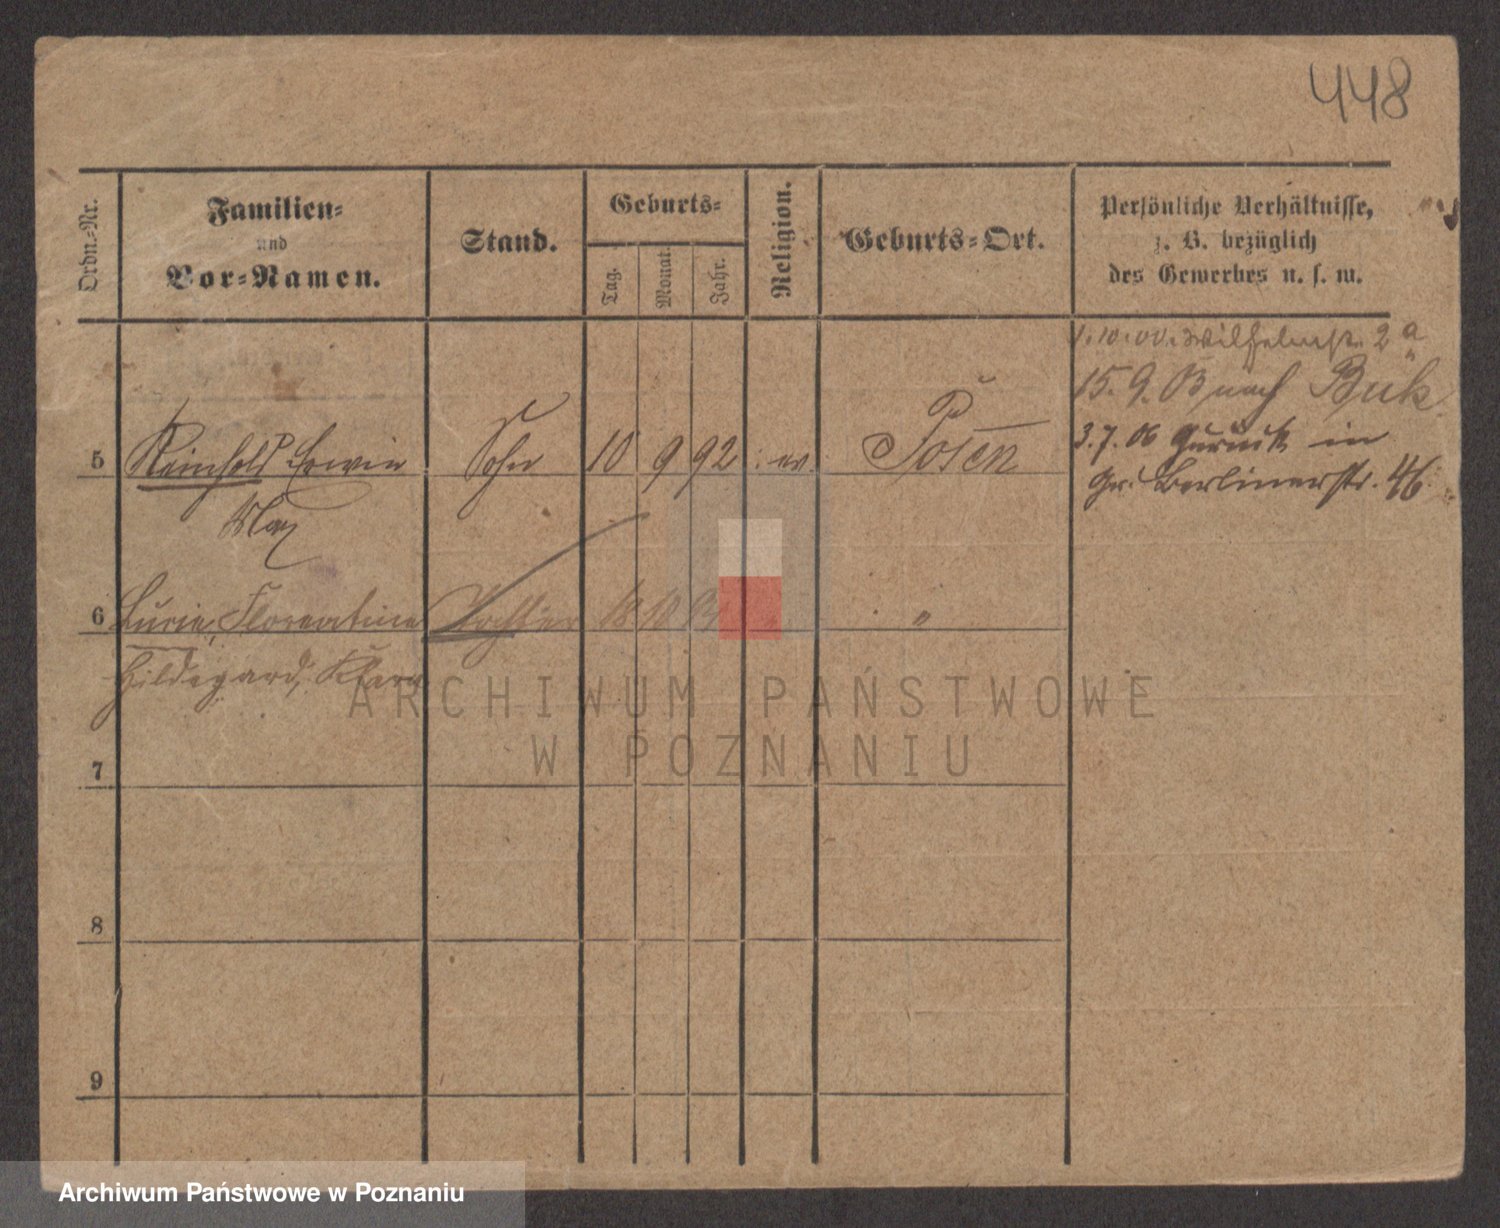 448
Ordn.-Nr.
Familien-
und
Vor-Namen.
Stand.
Geburts-
Tag.
Monat.
Jahr.
Religion.
Geburts-Ort.
Persönliche Verhältnisse,
z. B. bezüglich
des Gewerbes u. s. w.
1.10.00. Wilhelmstr. 2a
15. 9. 03 nach Buk
3.7.06 zurück in
Gr. Berlinerstr. 46
5 Reinhold Erwin Sohn 10 9 92 ev. Posen
Max
6 Lucie, Florentine Tochter 18 10 " "
Hildegard, Klara
7
8
9
ARCHIWUM PAŃSTWOWE
W POZNANIU
Archiwum Państwowe w Poznaniu